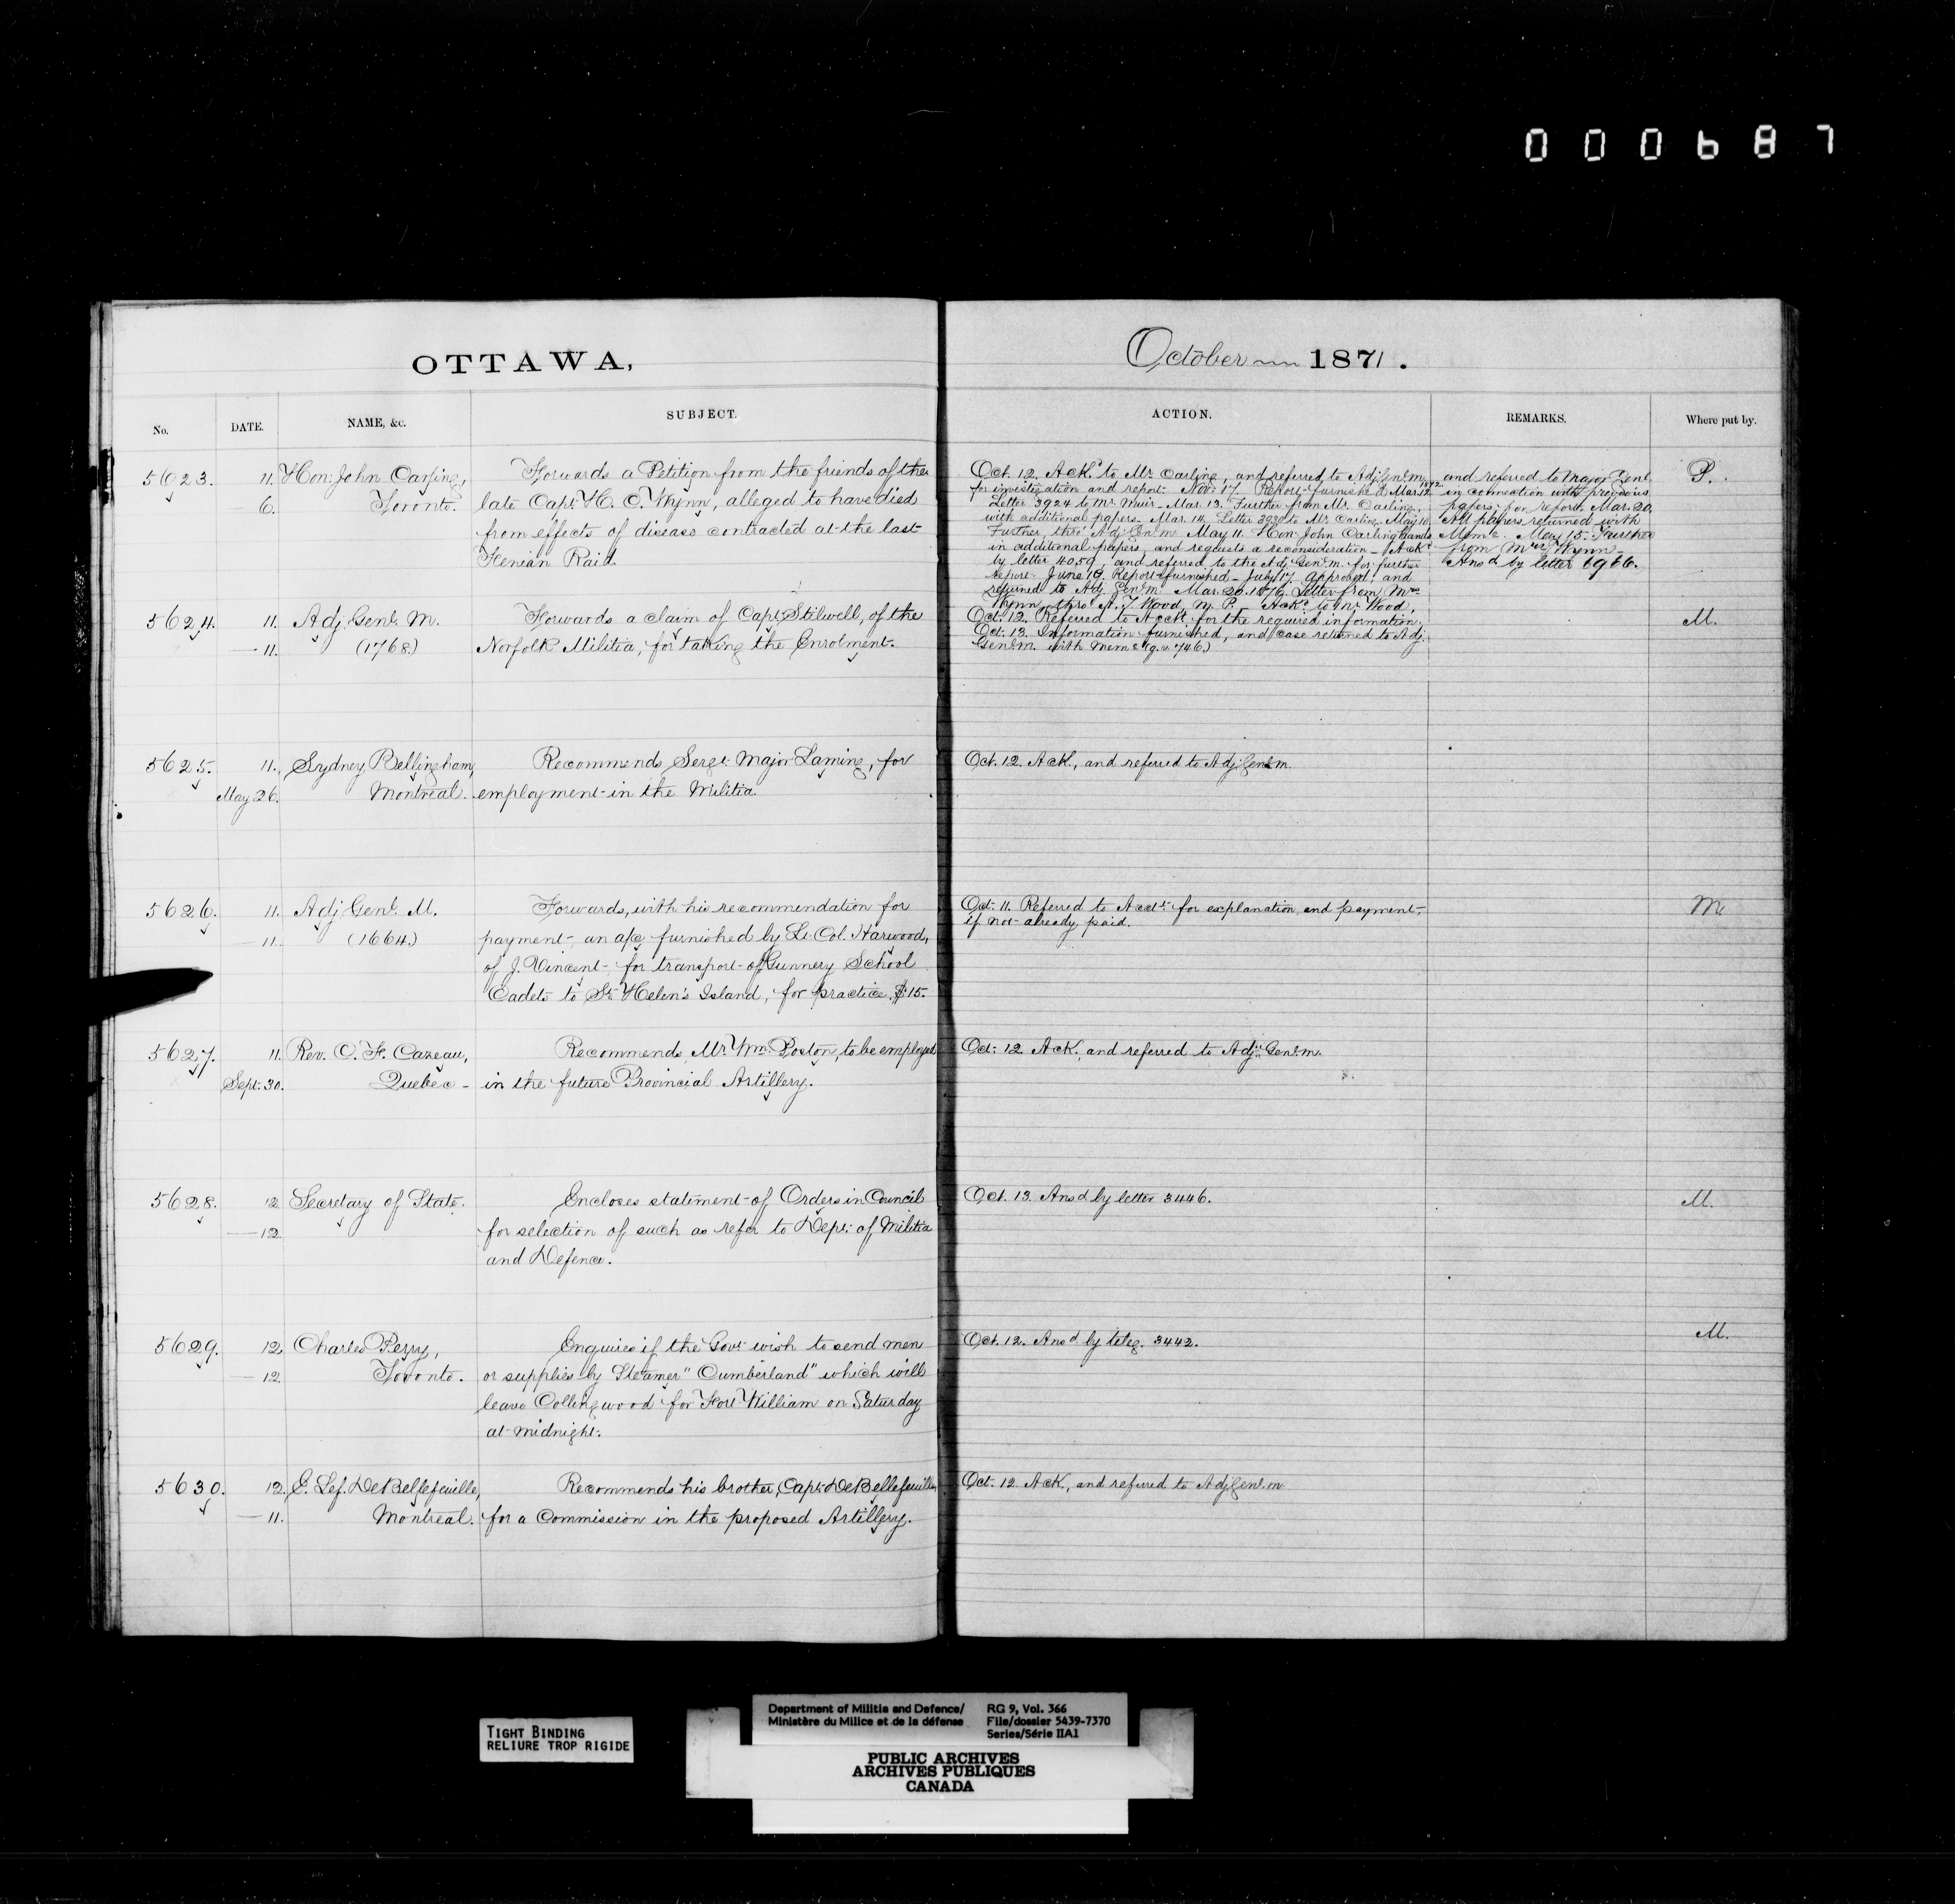 0 0 0 6 8 7
OTTAWA,
October 1871.
No. DATE. NAME, &c. SUBJECT.
ACTION. REMARKS. Where put by.
5623. 11. Hon: John Carling, Forwards a Petition from the friends of the
6. Toronto. late Capt. H. C. Wynn, alleged to have died
from effects of disease contracted at the last
Fenian Raid.
Oct. 12. Ackd to Mr. Carling, and referred to Adj. Genl. M.
for investigation and report. Nov: 17. Report furnished. Mar. 12. 1872.
Letter 3924 to Mr. Muir. Mar. 13. Further from Mr. Carling,
with additional papers. Mar. 14. Letter 3930 to Mr. Carling. May 10.
Further, thro' Adj. Genl. M. May 11. Hon: John Carling hands
in additional papers, and requests a reconsideration. Ackd
by letter 4059, and referred to the Adj. Genl. M. for further
report. June 10. Report furnished. July 17. Approved, and
returned to Adj. Genl. M. Mar. 20. 1876. Letter from Mrs
Wynn, thro' A. T. Wood, M. P. Ackd to Mr. Wood,
and referred to Major Genl.
in connection with previous
papers; for report. Mar. 20.
All papers returned with
Memo. May 15. Further
from Mrs. Wynn
Ansd by letter 6966.
P.
5624. 11. Adj. Genl. M. Forwards a claim of Capt. Stilwell, of the
11. (1768) Norfolk Militia, for taking the Enrolment.
Oct. 12. Referred to Acct. for the required information.
Oct. 13. Information furnished, and case returned to Adj.
Genl. M. with Memo (q.v. 746)
M.
5625. 11. Sydney Bellingham, Recommends Sergt. Major Laming, for
May 26. Montreal. employment in the Militia.
Oct. 12. Ack., and referred to Adj. Genl. M.
5626. 11. Adj. Genl. M. Forwards, with his recommendation for
11. (1664) payment, an a/c furnished by Lt. Col. Harwood,
of J. Vincent, for transport of Gunnery School
Cadets to St. Helen's Island, for practice. $15.
Oct. 11. Referred to Acct. for explanation and payment,
if not already paid.
M.
5627. 11. Rev. C. F. Cazeau, Recommends, Mr. Wm. Poston, to be employed
Sept. 30. Quebec in the future Provincial Artillery.
Oct. 12. Ack., and referred to Adj. Genl. M.
5628. 12. Secretary of State. Encloses statement of Orders in Council
12. for selection of such as refer to Dept. of Militia
and Defence.
Oct. 13. Ansd by letter 3446.
M.
5629. 12. Charles Perry, Enquires if the Govt. wish to send men
12. Toronto. or supplies by Steamer "Cumberland" which will
leave Collingwood for Fort William on Saturday
at midnight.
Oct. 12. Ansd by teleg. 3442.
M.
5630. 12. E. Lef. DeBellefeuille, Recommends his brother, Capt. DeBellefeuille,
11. Montreal. for a Commission in the proposed Artillery.
Oct. 12. Ack., and referred to Adj. Genl. M.
TIGHT BINDING
RELIURE TROP RIGIDE
Department of Militia and Defence/ RG 9, Vol. 366
Ministère du Milice et de la défense File/dossier 5439-7370
Series/Série IIA1
PUBLIC ARCHIVES
ARCHIVES PUBLIQUES
CANADA